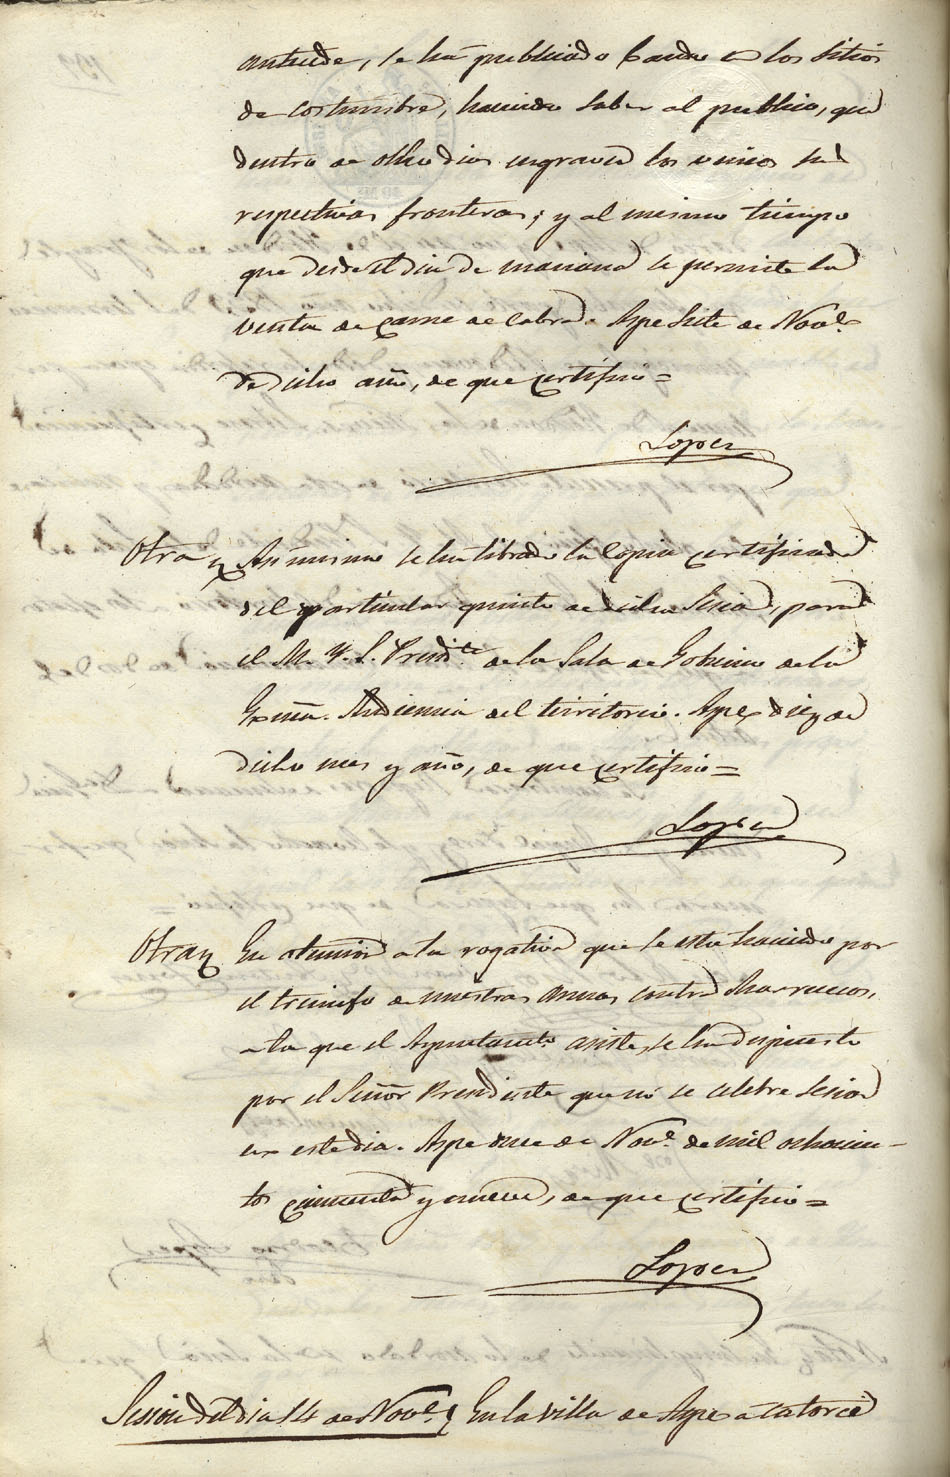 antecede, se há publicado bando en los sitios
de costumbre, haciendo saber al publico, que
dentro de ocho dias los vecinos sus
respectivas fronteras; y al mismo tiempo
que desde el dia de mañana se permite la
venta de carne de cabra. Aspe siete de Nov.e
de dicho año, de que certifico=
Lopez
Otra Asimismo se ha librado la copia certificada
del particular quinto de dicha Sesion, para
el M. Y. S. Presid.te de la Sala de Gobierno de la
Exma. Audiencia del territorio. Aspe diez de
dicho mes y año, de que certifico=
Lopez
Otra En atencion a la rogativa que se esta haciendo por
el triunfo de nuestras armas contra Marruecos,
a la que el Ayuntam.to asiste, se ha dispuesto
por el Señor Presidente que no se celebre sesion
en este dia. Aspe once de Nov.e de mil ochocien-
tos cincuenta y nueve, de que certifico=
Lopez
Sesion del dia 14 de Nov.e En la villa de Aspe a catorce